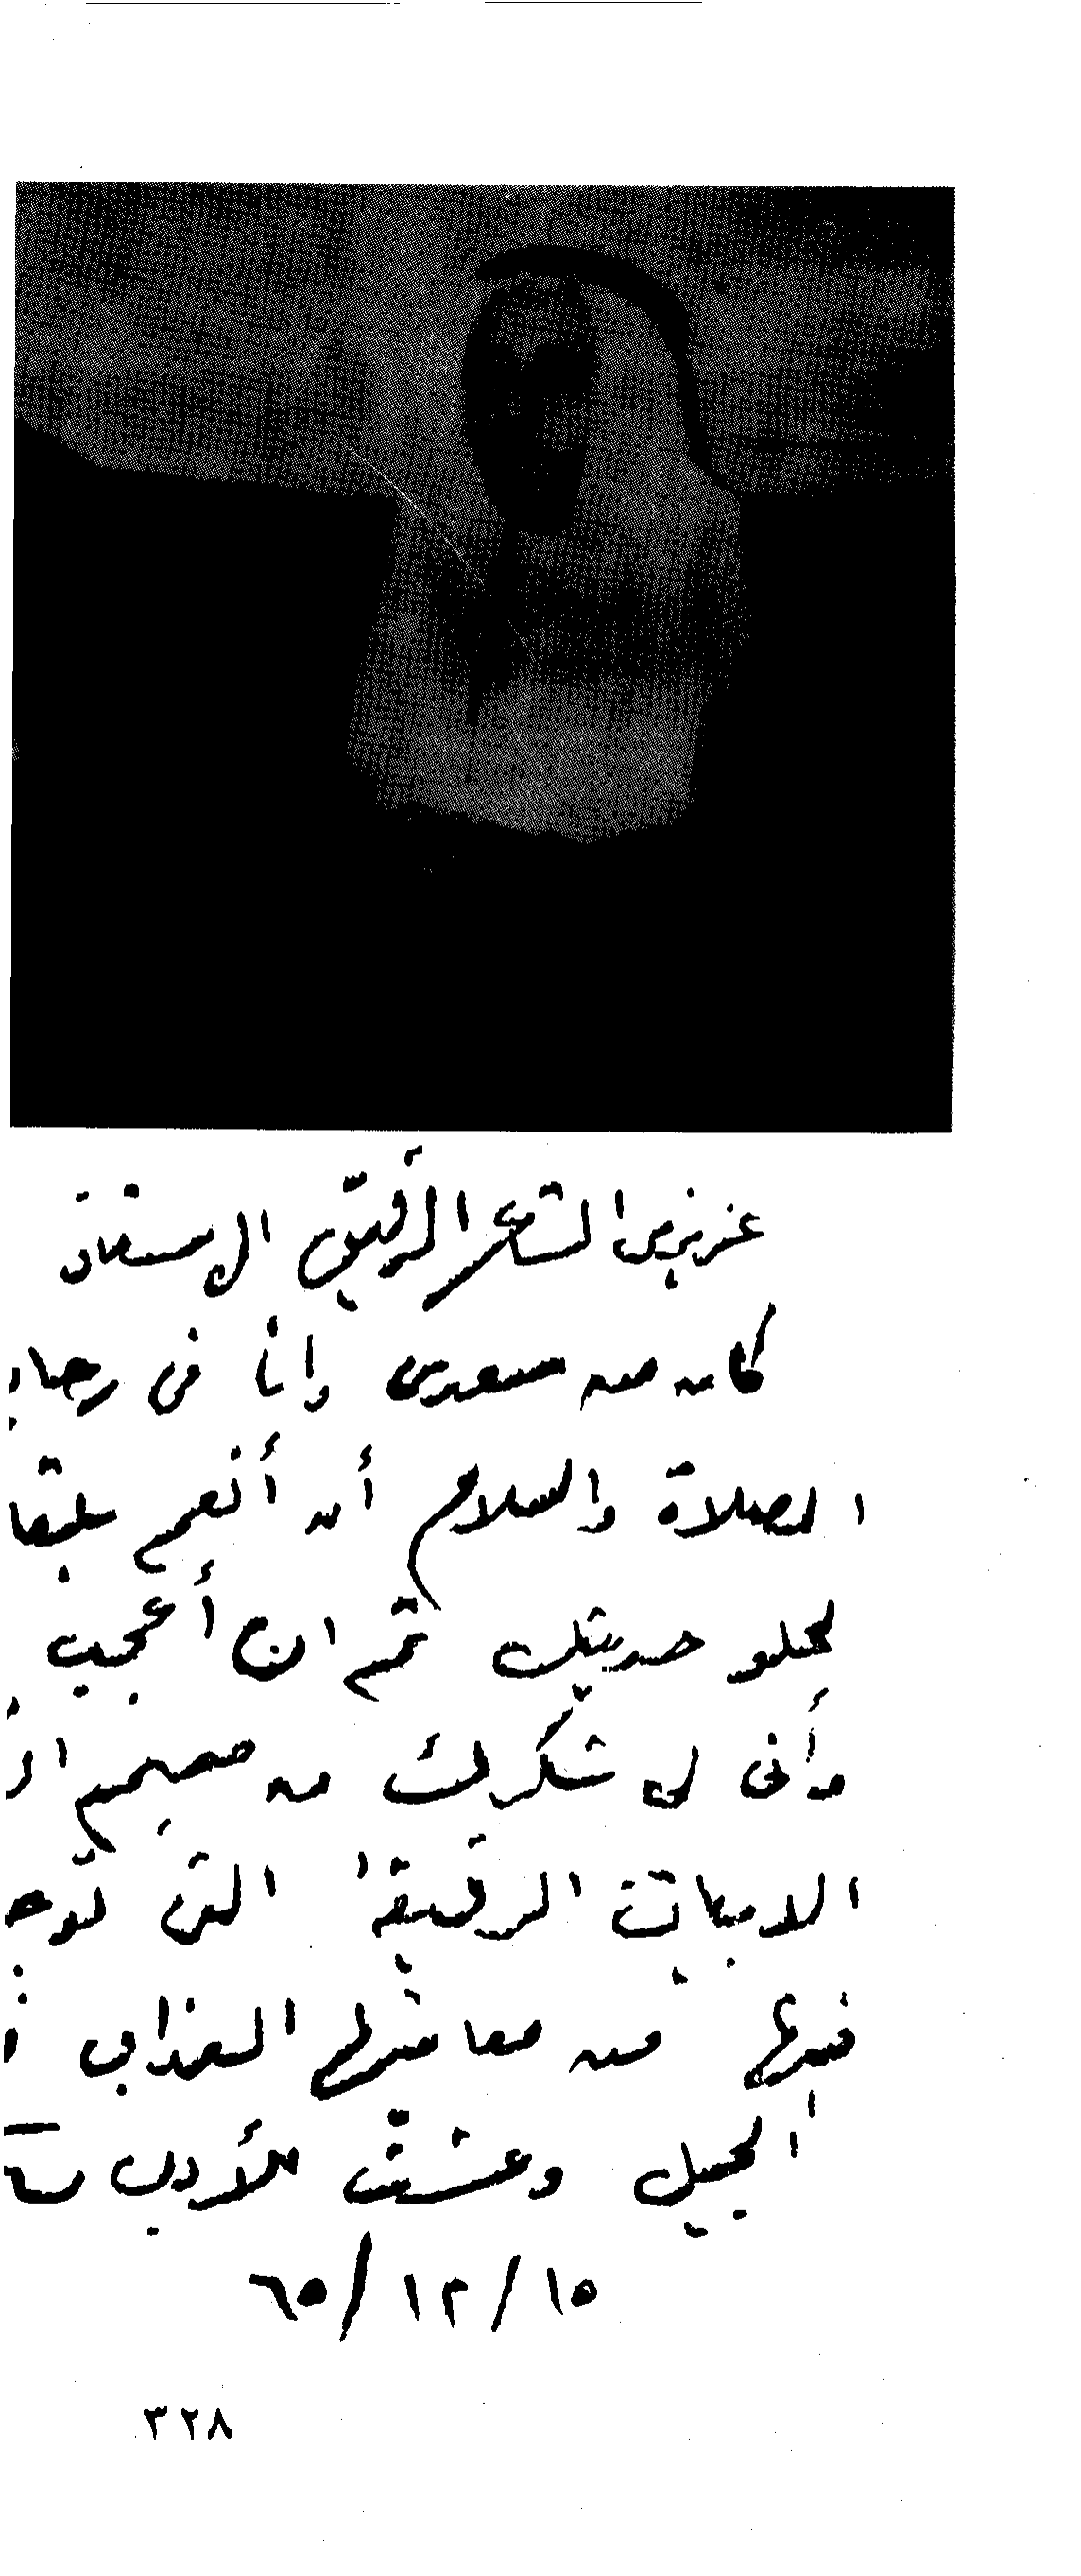 عزيزي الشاعر الرقيق الاستاذ
كان من سعدى وانا فى رحاب
الصلاة والسلام أن أنعم بلقا
لحلو حديثك ثم ان أعجب
وأنى لى شكرك من صميم
الابيات الرقيقة التى
فيها من معانيها العذاب
الجميل وعشت للأدب
١٥/١٢/٦٥
٣٢٨